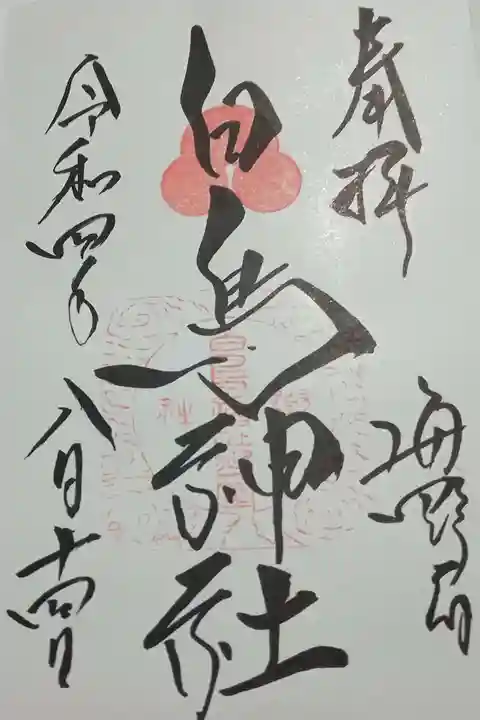 奉拝
海野宿
白鳥神社
令和四年八月十四日